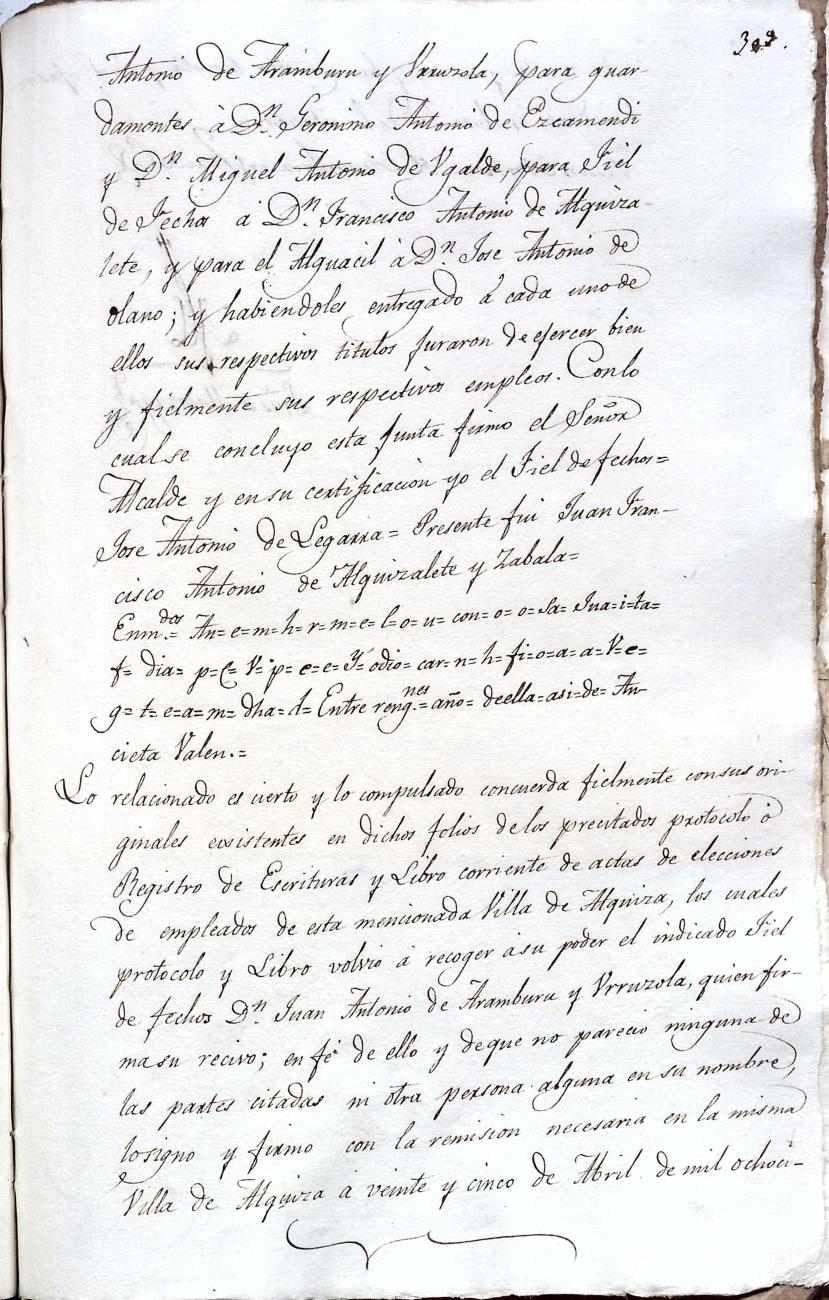 309.
Antonio de Aramburu y Vrruzola, para guar-
damontes à Dn. Geronimo Antonio de Ezcamendi
y Dn. Miguel Antonio de Vgalde, para Fiel
de Fechos à Dn. Francisco Antonio de Alquiza-
lete, y para el Alguacil à Dn. Jose Antonio de
olano; y habiendoles entregado à cada uno de
ellos sus respectivos titulos juraron de ejercer bien
y fielmente sus respectivos empleos. Con lo
cual se concluyo esta junta firmo el Señor
Alcalde y en su certificacion yo el Fiel de fechos=
Jose Antonio de Legarra= Presente fui Juan Fran-
cisco Antonio de Alquizalete y Zabala=
Enmdos.= An=e=m=h=r=m=e=l=o=u=con=o=o=sa=Jua=i=ta=
f=dia=p=C=V=p=e=e=Y=odio=car=n=h=fi=o=a=a=V=e=
g=t=e=a=m=dha=d= Entre rengnes.=año=deella=asi=de=An-
cieta Valen.=
Lo relacionado es cierto y lo compulsado concuerda fielmente con sus ori-
ginales exsistentes en dichos folios de los precitados protocolo ò
Registro de Escrituras y Libro corriente de actas de elecciones
de empleados de esta mencionada Villa de Alquiza, los cuales
protocolo y Libro volvio à recoger à su poder el indicado Fiel
de fechos Dn. Juan Antonio de Aramburu y Vrruzola, quien fir-
ma su recivo; en fé de ello y de que no parecio ninguna de
las partes citadas ni otra persona alguna en su nombre,
lo signo y firmo con la remision necesaria en la misma
Villa de Alquiza à veinte y cinco de Abril de mil ochoci-